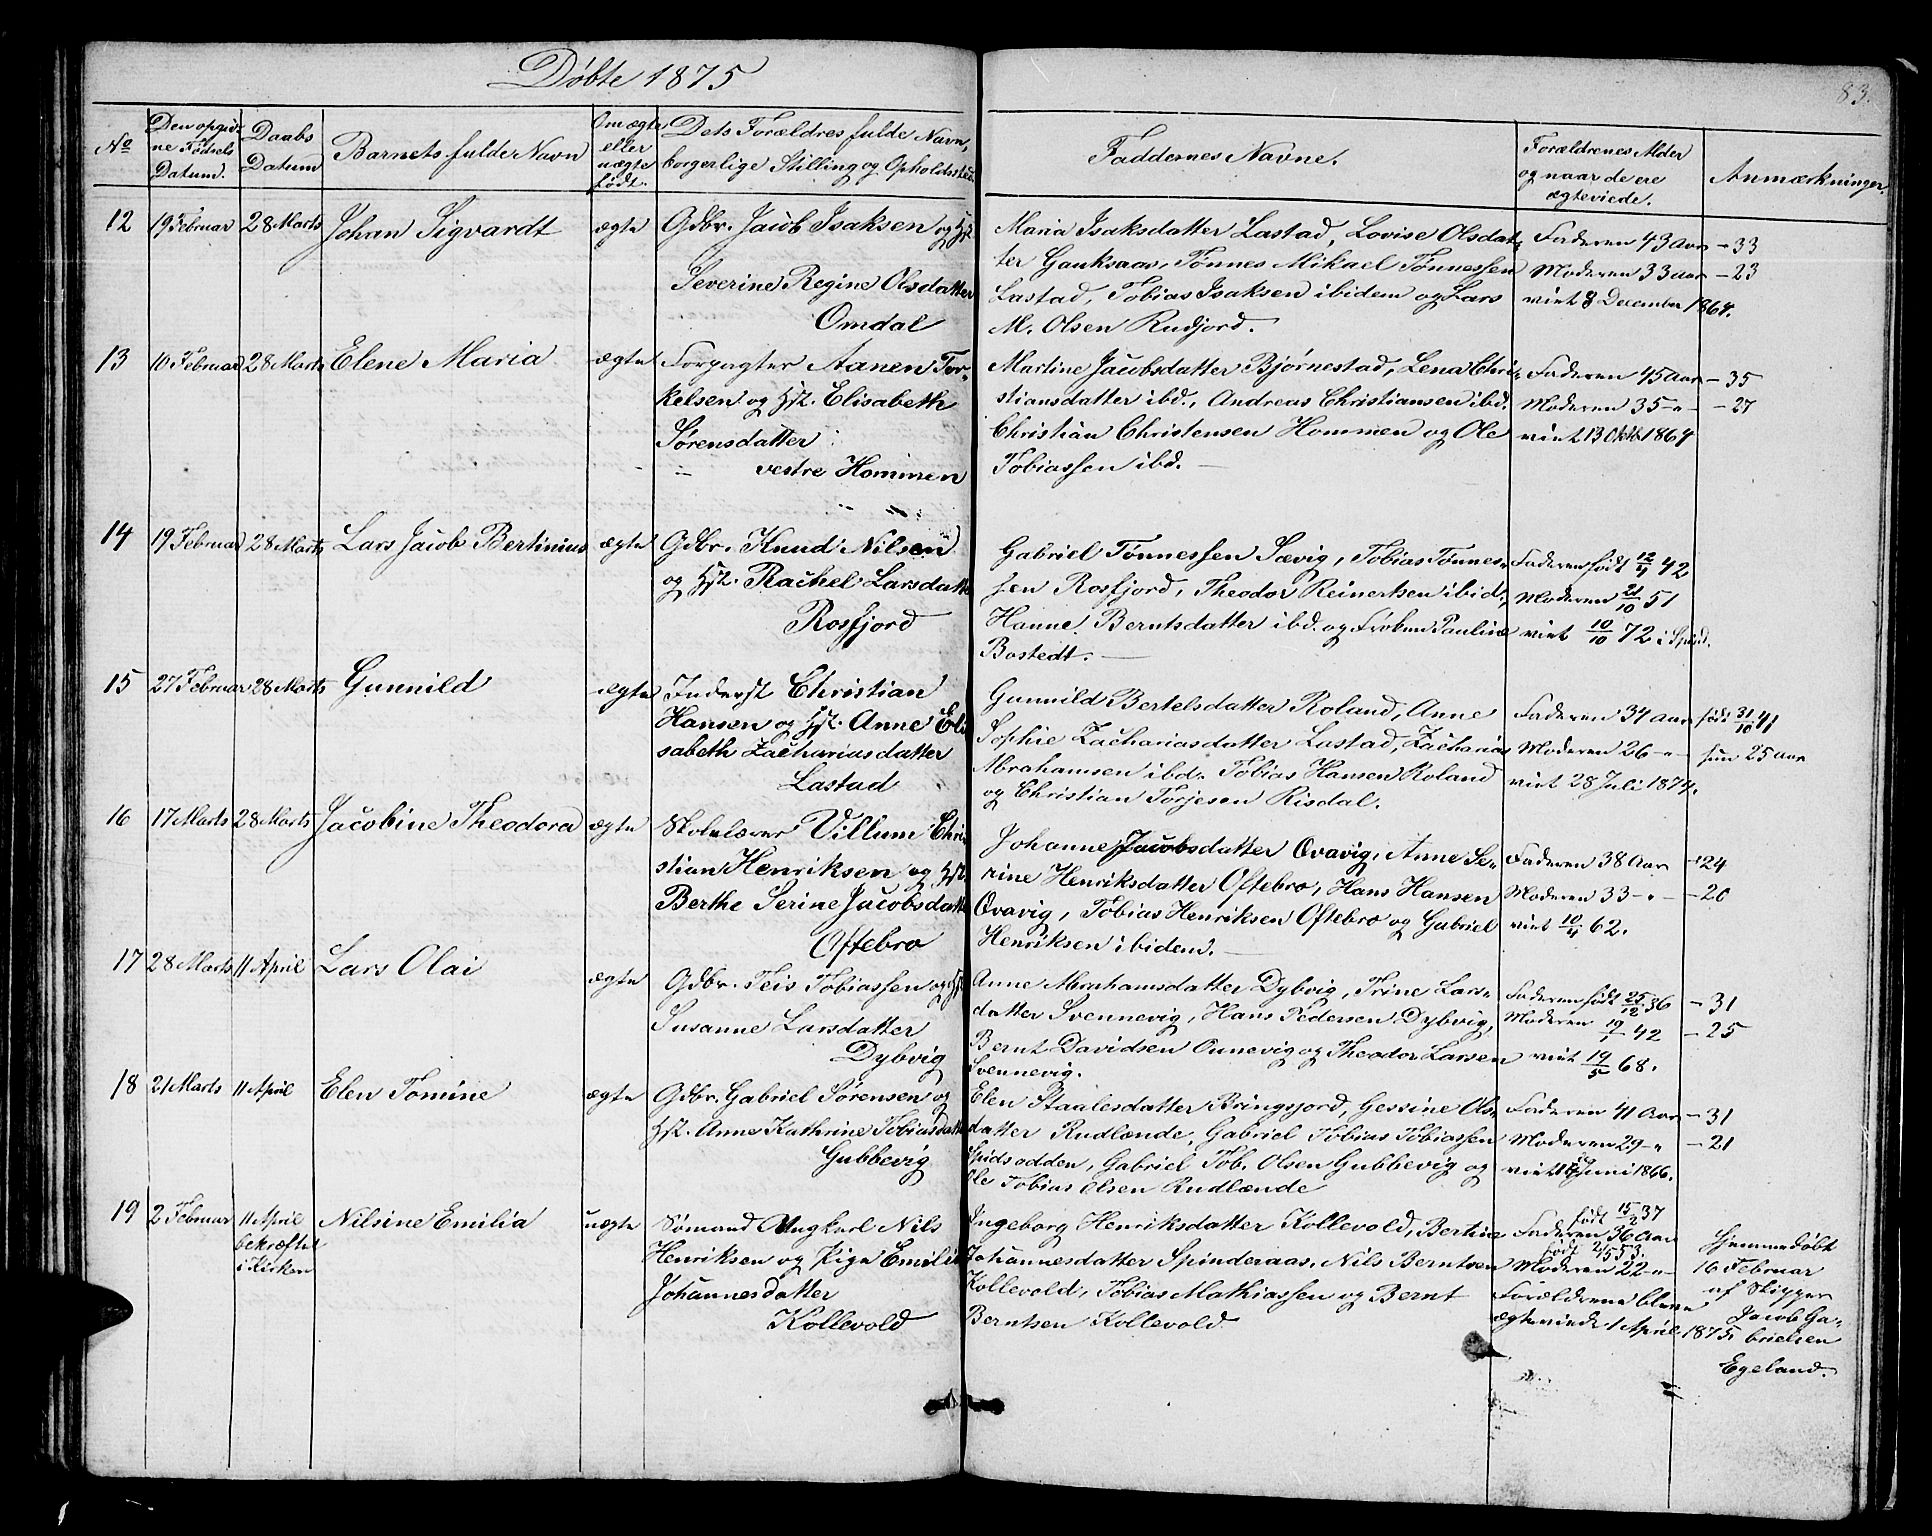 Døbte 1875
83.
No
Den opgiv-
ne Fødsels
Datum.
Daabs
Datum
Barnets fulde Navn
Om ægte
eller
uægte
født.
Dets Forældres fulde Navn,
borgerlige Stilling og Opholdssted.
Faddernes Navne.
Forældrenes Alder
og naar de ere
ægteviede.
Anmærkninger.
12 19 Februar 28 Marts Johan Sigvardt ægte
Gdbr. Jacob Isaksen og Hst.
Severine Regine Olsdatter
Omdal
Maria Isaksdatter Lastad, Lovise Olsdat-
ter Gauksaas, Tønnes Mikael Tønnessen
Lastad, Tobias Isaksen ibidem og Lars
M. Olsen Rudjord.
Faderen 43 Aar - 33
Moderen 33 aar - 23
viet 8 December 1864.
13 10 Februar 28 Marts Elene Maria ægte
Forpagter Aanen Tor-
kelsen og Hst. Elisabeth
Sørensdatter
vestre Hommen
Martine Jacobsdatter Bjørnestad, Lena Chri-
stiansdatter ibd., Andreas Christiansen ibd.
Christian Christensen Hommen og Ole
Tobiassen ibd.
Faderen 45 Aar - 35
Moderen 35 -"- - 27
viet 13 Oktb. 1864
14 19 Februar 28 Marts Lars Jacob Bertinius ægte
Gdbr. Knud Nilsen
og Hst. Rachel Larsdatter
Rosfjord
Gabriel Tønnessen Sævig, Tobias Tønnes-
sen Rosfjord, Theodor Reinertsen ibid.,
Hanne Berntsdatter ibd. og Frøken Pauline
Bostedt.
Faderen født 12/4 42
Moderen 21/10 51
viet 10/10 72 i Spind.
15 27 Februar 28 Marts Gunnild ægte
Inderst Christian
Hansen og Hst. Anne Eli
sabeth Zachariasdatter
Lastad
Gunnild Bertelsdatter Roland, Anne
Sophie Zachariasdatter Lastad, Zacharias
Abrahamsen ibd. Tobias Hansen Roland
og Christian Torjesen Risdal.
Faderen 34 aar født 31/10 41
Moderen 26 -"- hun 25 aar
viet 28 Juli 1874.
16 17 Marts 28 Marts Jacobine Theodora ægte
Skolelærer Villum Chri
stian Henriksen og Hst.
Berthe Serine Jacobsdatter
Oftebro
Johanne Jacobsdatter Qvavig, Anne Se-
rine Henriksdatter Oftebro, Hans Hansen
Qvavig, Tobias Henriksen Oftebro og Gabriel
Henriksen ibidem.
Faderen 38 Aar - 24
Moderen 33 -"- - 20
viet 10/4 62.
17 28 Marts 11 April Lars Olai ægte
Gdbr. Teis Tobiassen og Hst.
Susanne Larsdatter
Dybvig
Anne Abrahamsdatter Dybvig, Trine Lars-
datter Svennevig, Hans Pedersen Dybvig,
Bernt Davidsen Ounevig og Theodor Larsen
Svennevig.
Faderen født 25/12 36 - 31
Moderen 19/1 42 - 25
viet 19/5 68.
18 21 Marts 11 April Elen Tomine ægte
Gdbr. Gabriel Sørensen og
Hst. Anne Kathrine Tobiasdatter
Gubbevig
Elen Staalesdatter Bringsjord, Gessine Ols-
datter Rudlænde, Gabriel Tobias Tobiassen
Spidsodden, Gabriel Tob. Olsen Gubbevig og
Ole Tobias Olsen Rudlænde
Faderen 41 Aar - 31
Moderen 29 -"- - 21
viet Juni 1866.
19 2 Februar 11 April
bekræftet
i Kirken
Nilsine Emilia uægte
Sømand Ungkarl Nils
Henriksen og Pige Emilie
Johannesdatter
Kollevold
Ingeborg Henriksdatter Kollevold, Bertine
Johannesdatter Spinderaas, Nils Berntsen
Kollevold, Tobias Mathiassen og Bernt
Berntsen Kollevold
født 15/2 37
Faderen 36 Aar
født 2/5 53.
Moderen 22 -"-
Forældrene bleve
ægteviede 1 April 1875.
Hjemmedøbt
16 Februar
af Skipper
Jacob Ga-
brielsen
Egeland.